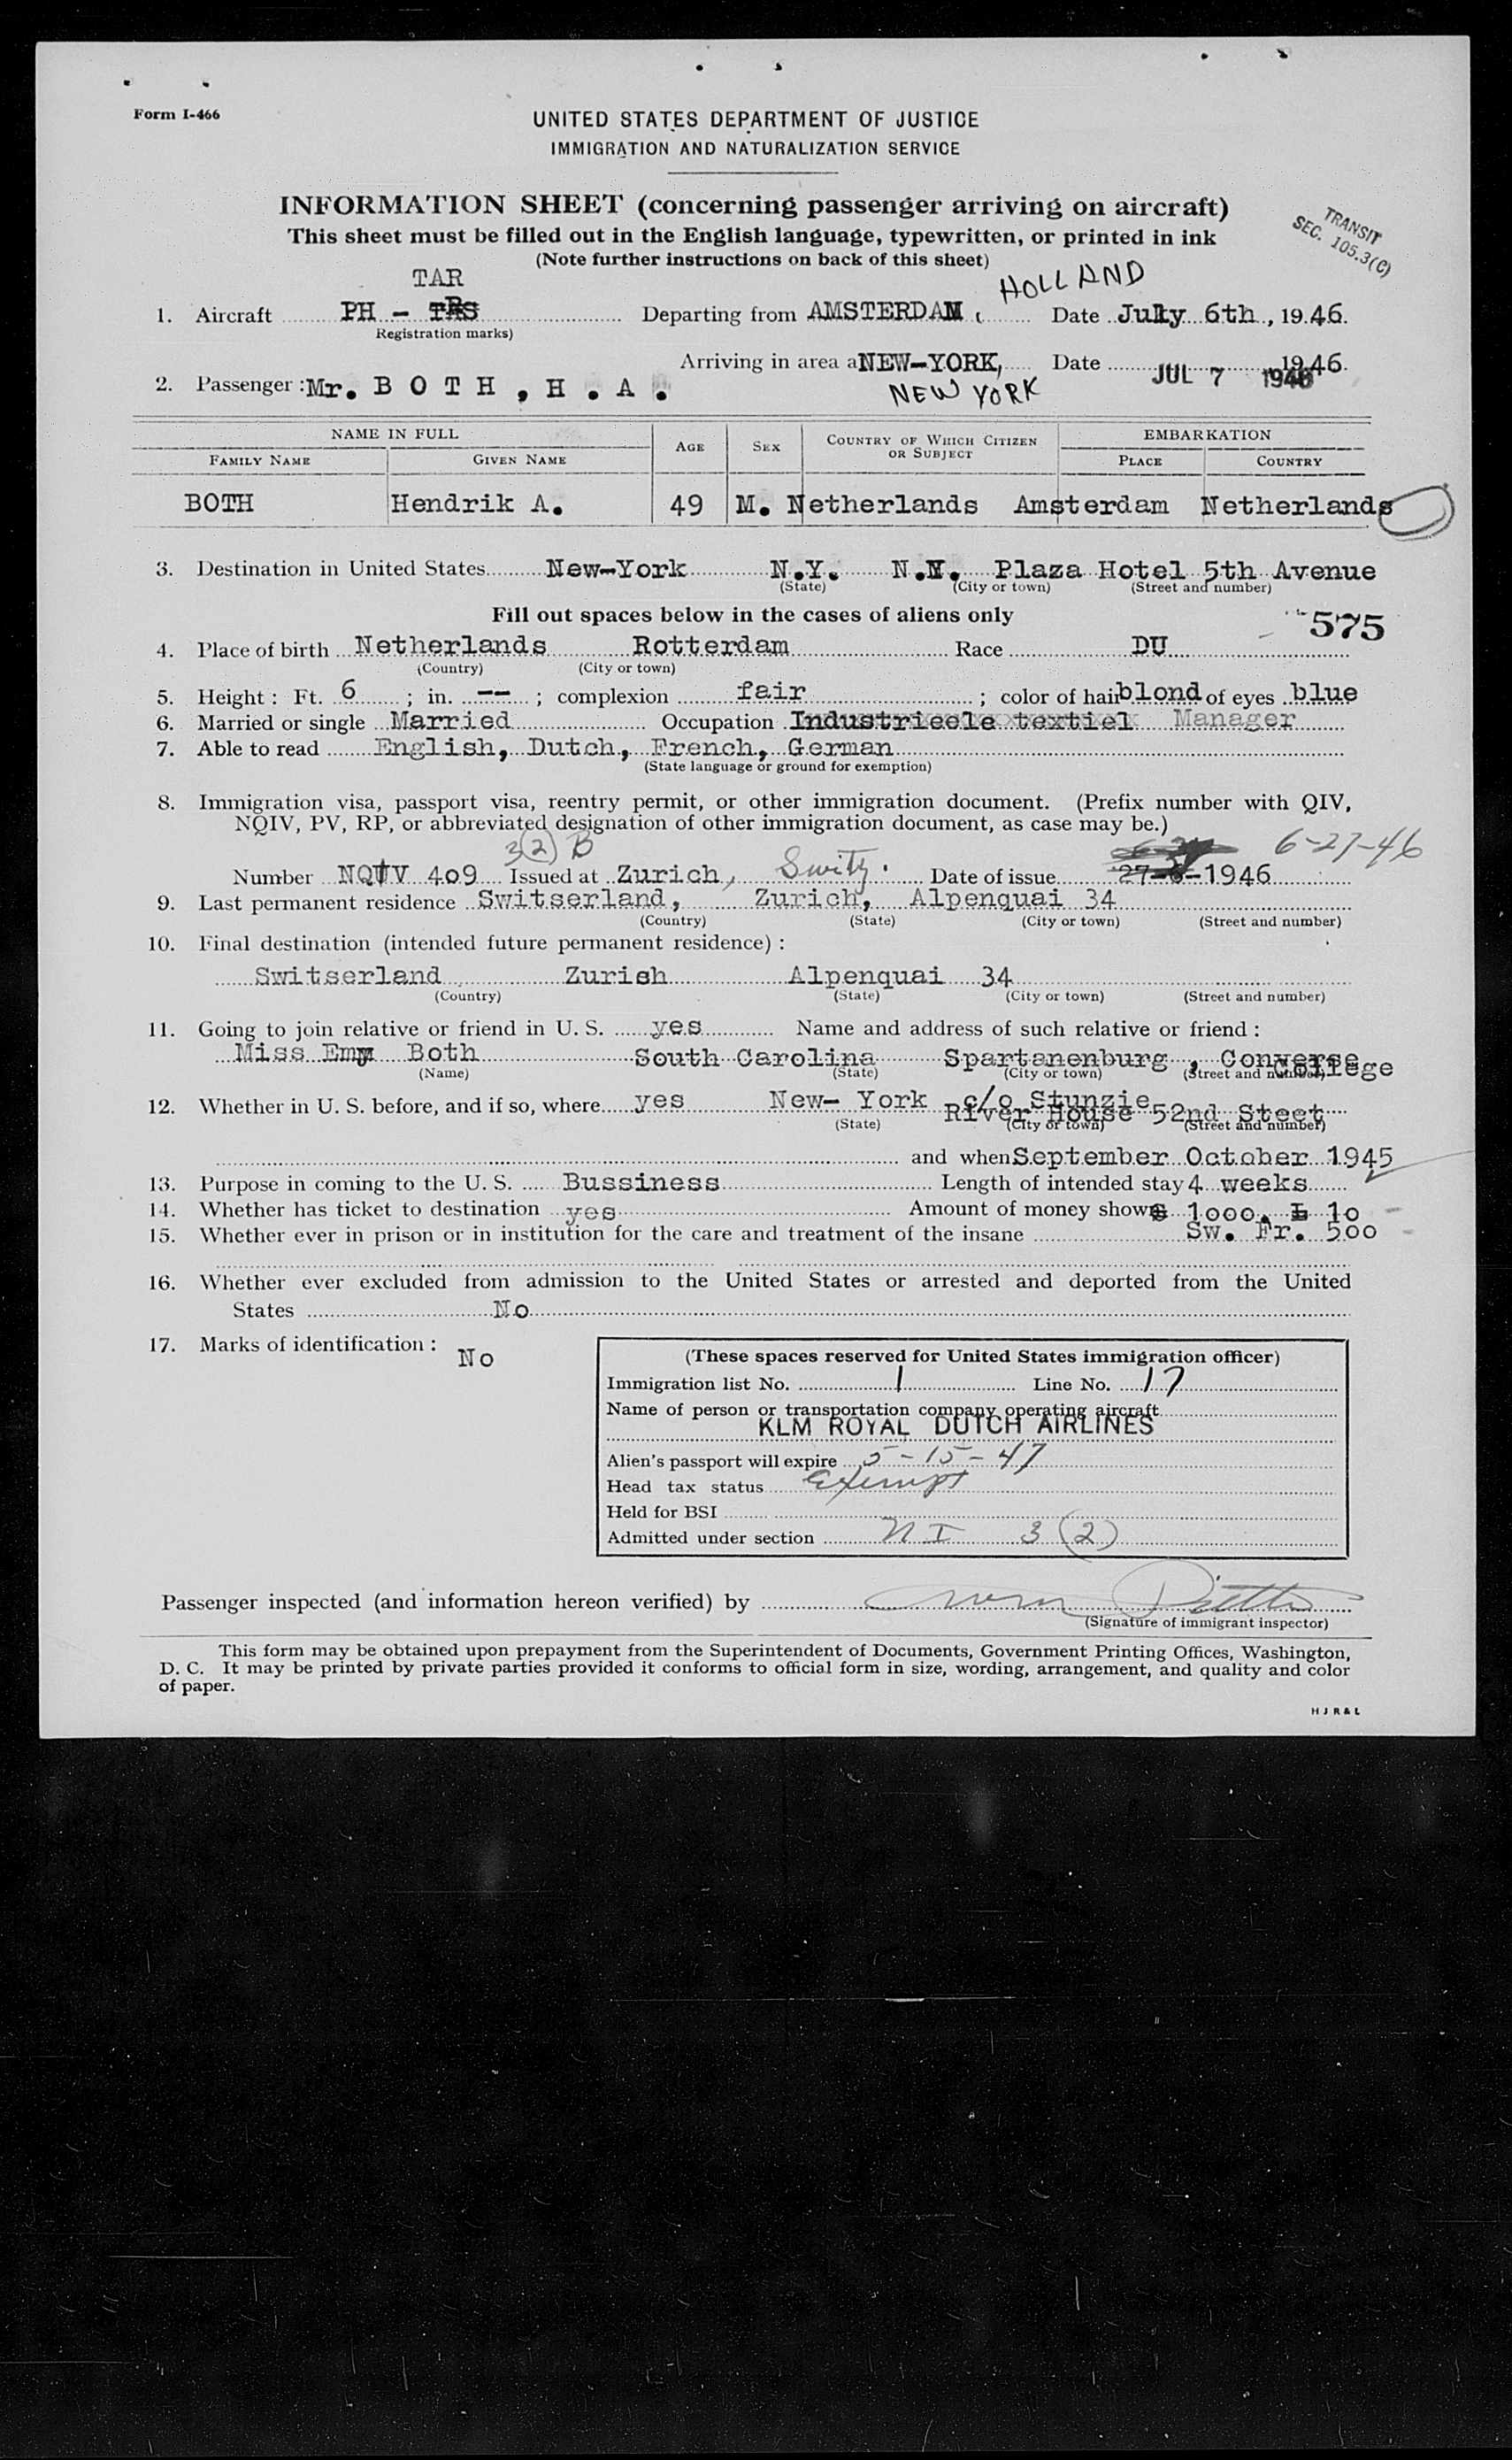 Form I-466
UNITED STATES DEPARTMENT OF JUSTICE
IMMIGRATION AND NATURALIZATION SERVICE
INFORMATION SHEET (concerning passenger arriving on aircraft)
This sheet must be filled out in the English language, typewritten, or printed in ink
(Note further instructions on back of this sheet)
TRANSIT
SEC. 105.3(C)
TAR HOLLAND
1. Aircraft PH - Departing from AMSTERDAM, Date July 6th, 1946.
(Registration marks)
Arriving in area a NEW-YORK, Date JUL 7 1946 1946.
2. Passenger : Mr. B O T H , H . A . NEW YORK
NAME IN FULL AGE SEX COUNTRY OF WHICH CITIZEN OR SUBJECT EMBARKATION
FAMILY NAME GIVEN NAME PLACE COUNTRY
BOTH Hendrik A. 49 M. Netherlands Amsterdam Netherlands
3. Destination in United States New-York N.Y. N.Y. Plaza Hotel 5th Avenue
(State) (City or town) (Street and number)
Fill out spaces below in the cases of aliens only
575
4. Place of birth Netherlands Rotterdam Race DU
(Country) (City or town)
5. Height : Ft. 6 ; in. -- ; complexion fair ; color of hair blond of eyes blue
6. Married or single Married Occupation Industrieele textiel Manager
7. Able to read English, Dutch, French, German
(State language or ground for exemption)
8. Immigration visa, passport visa, reentry permit, or other immigration document. (Prefix number with QIV,
NQIV, PV, RP, or abbreviated designation of other immigration document, as case may be.)
3(2) B 6-27-46
Number NQIV 409 Issued at Zurich, Switz. Date of issue 27-6-1946
9. Last permanent residence Switserland, Zurich, Alpenquai 34
(Country) (State) (City or town) (Street and number)
10. Final destination (intended future permanent residence) :
Switserland Zurish Alpenquai 34
(Country) (State) (City or town) (Street and number)
11. Going to join relative or friend in U. S. yes Name and address of such relative or friend :
Miss Emy Both South Carolina Spartanenburg , Converse College
(Name) (State) (City or town) (Street and number)
12. Whether in U. S. before, and if so, where yes New- York c/o Stunzie
River House 52nd Steet
(State) (City or town) (Street and number)
and when September October 1945
13. Purpose in coming to the U. S. Bussiness Length of intended stay 4 weeks
14. Whether has ticket to destination yes Amount of money shown $ 1000. £ 10
15. Whether ever in prison or in institution for the care and treatment of the insane Sw. Fr. 500
16. Whether ever excluded from admission to the United States or arrested and deported from the United
States No
17. Marks of identification :
No
(These spaces reserved for United States immigration officer)
Immigration list No. 1 Line No. 17
Name of person or transportation company operating aircraft
KLM ROYAL DUTCH AIRLINES
Alien's passport will expire 5-15-47
Head tax status Exempt
Held for BSI
Admitted under section NI 3 (2)
Passenger inspected (and information hereon verified) by
(Signature of immigrant inspector)
This form may be obtained upon prepayment from the Superintendent of Documents, Government Printing Offices, Washington,
D. C. It may be printed by private parties provided it conforms to official form in size, wording, arrangement, and quality and color
of paper.
H J R & L